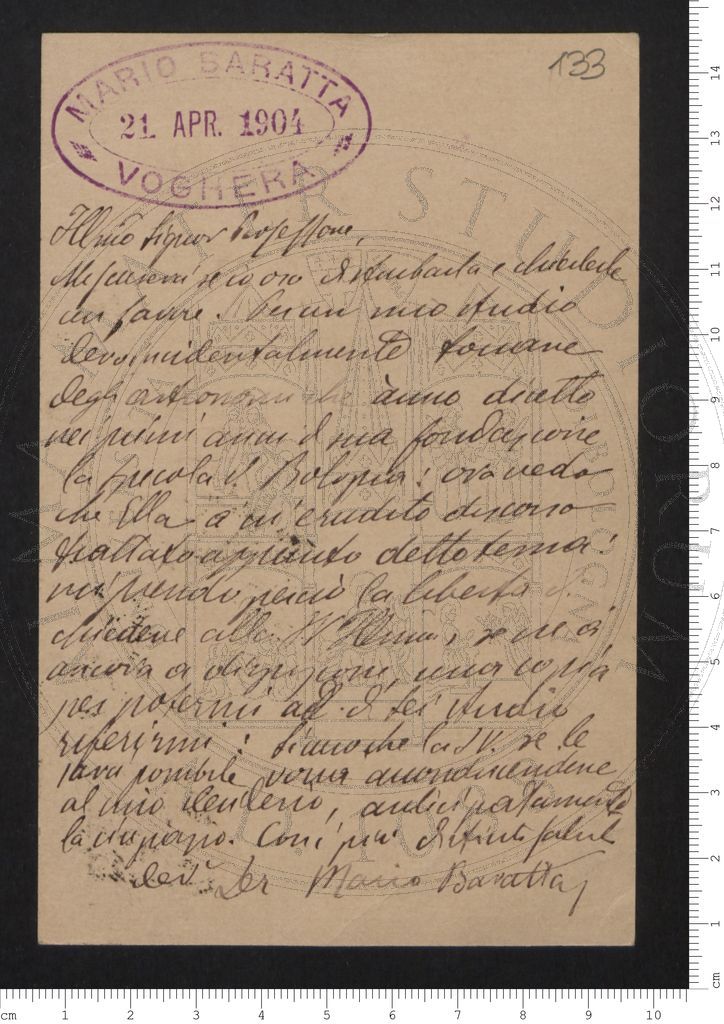 133
MARIO BARATTA
21. APR. 1904
VOGHERA
Illmo Signor Professore,
Mi scuserà se io oso disturbarla e chiederle
un favore. Per un mio studio
devo incidentalmente toccare
degli astronomi che ànno diretto
nei primi anni d sua fondazione
la specola d. Bologna: ora vedo
che Ella à in erudito discorso
trattato appunto detto tema:
mi prendo perciò la libertà di
chiedere alla S V Illma, se ne à
ancora a disposizione, una copia
per potermi ad. d. Lei studio
riferirmi: sicuro che la S V. se le
sarà possibile vorrà accondiscendere
al mio desiderio, anticipatamente
la ringrazio. Con i più distinti saluti
dev. Mario Baratta
ALMA MATER STUDIORUM
BOLOGNA
A.D. 1088
cm 1 2 3 4 5 6 7 8 9 10
cm 1 2 3 4 5 6 7 8 9 10 11 12 13 14